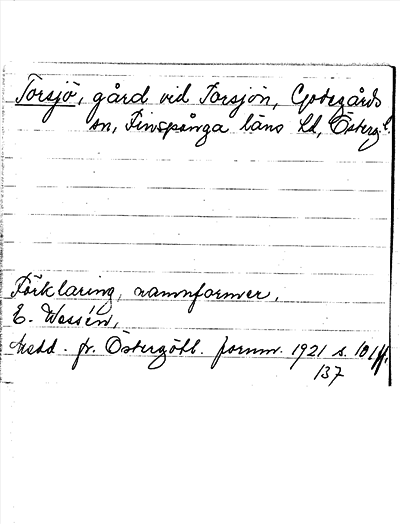 Torsjö, gård vid Torsjön, Godegårds
sn, Finspånga läns hd, Österg l.
Förklaring, namnformer,
E. Wessén,
Medd. fr. Östergötl. fornm. 1921 s. 101 ff.
137